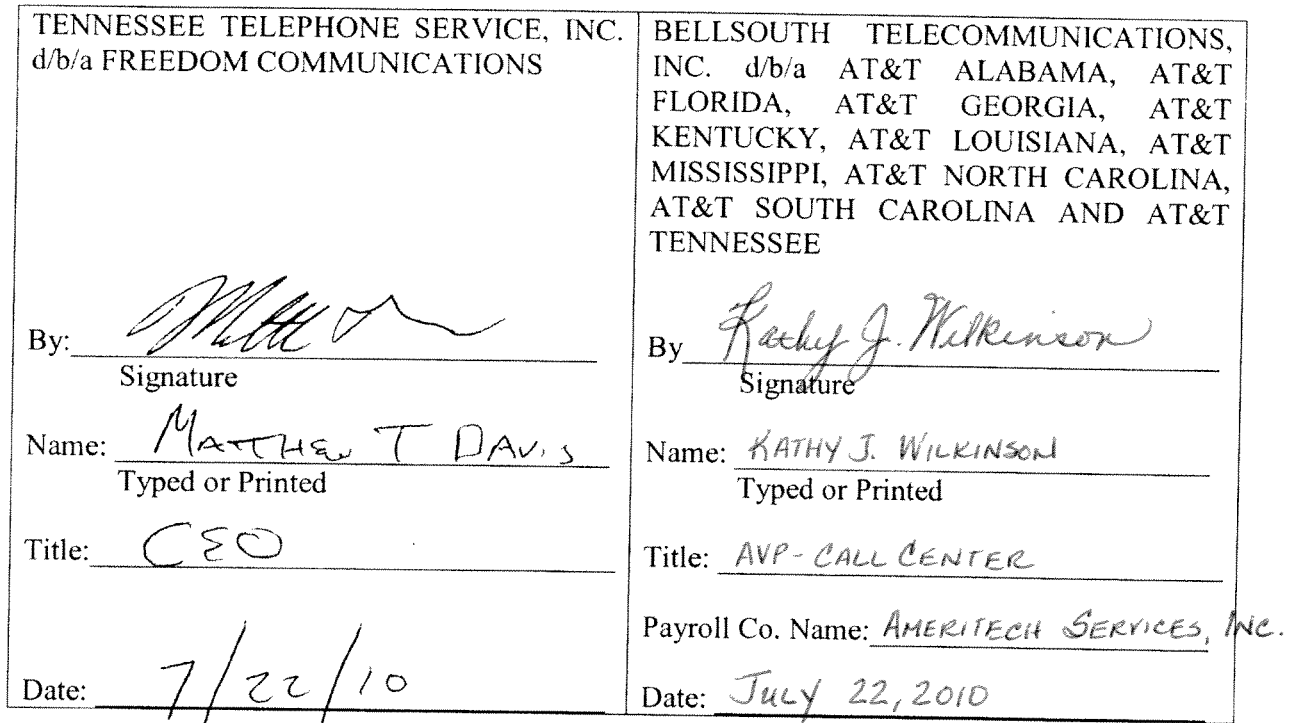 TENNESSEE TELEPHONE SERVICE, INC.
d/b/a FREEDOM COMMUNICATIONS
By:
Signature
Name: MATTHEW T DAVIS
Typed or Printed
Title: CEO
Date: 7/22/10
BELLSOUTH TELECOMMUNICATIONS,
INC. d/b/a AT&T ALABAMA, AT&T
FLORIDA, AT&T GEORGIA, AT&T
KENTUCKY, AT&T LOUISIANA, AT&T
MISSISSIPPI, AT&T NORTH CAROLINA,
AT&T SOUTH CAROLINA AND AT&T
TENNESSEE
By Kathy J. Wilkinson
Signature
Name: KATHY J. WILKINSON
Typed or Printed
Title: AVP-CALL CENTER
Payroll Co. Name: AMERITECH SERVICES, INC.
Date: JULY 22, 2010